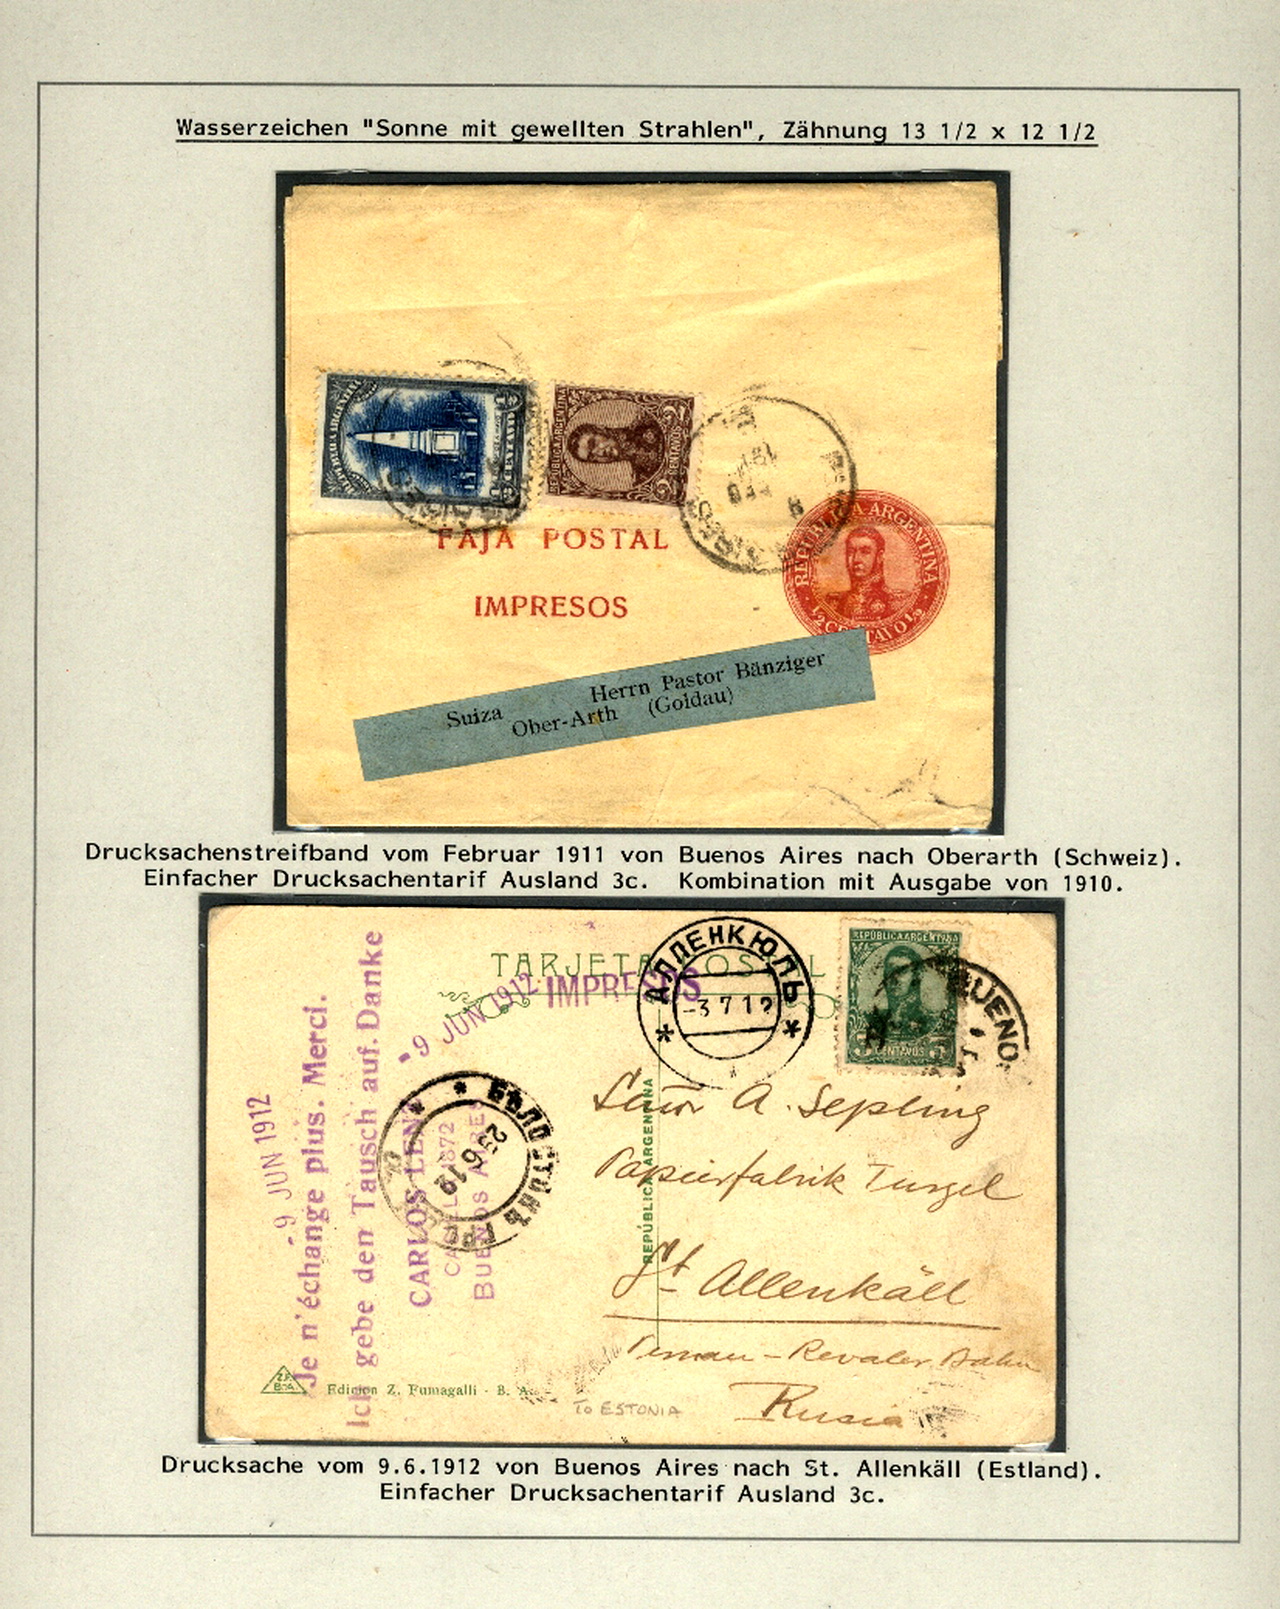 Wasserzeichen "Sonne mit gewellten Strahlen", Zähnung 13 1/2 x 12 1/2
REPÚBLICA ARGENTINA
1/2 CENTAVO 1/2
REPÚBLICA ARGENTINA
2 CENTAVOS 2
FAJA POSTAL
IMPRESOS
REPÚBLICA ARGENTINA
Herrn Pastor Bänziger
Suiza
Ober-Arth (Goldau)
Drucksachenstreifband vom Februar 1911 von Buenos Aires nach Oberarth (Schweiz).
Einfacher Drucksachentarif Ausland 3c. Kombination mit Ausgabe von 1910.
TARJETA POSTAL
IMPRESOS
-9 JUN 1912
АЛЛЕНКЮЛЬ
-3 7 12
REPÚBLICA ARGENTINA
3 CENTAVOS 3
BUENO
-9 JUN 1912
Je n'échange plus. Merci.
Ich gebe den Tausch auf. Danke
CARLOS LENT
CASILLA 1872
BUENOS AIRES
БѢЛОСТОКЪ ГРОД
25 6 12
REPÚBLICA ARGENTINA
A. Sepling
Papierfabrik Turgel
St Allenkäll
Pernau - Revaler Bahn
Rusia
To ESTONIA
Z.F.
B.A.
Edicion Z. Fumagalli - B. A.
Drucksache vom 9.6.1912 von Buenos Aires nach St. Allenkäll (Estland).
Einfacher Drucksachentarif Ausland 3c.